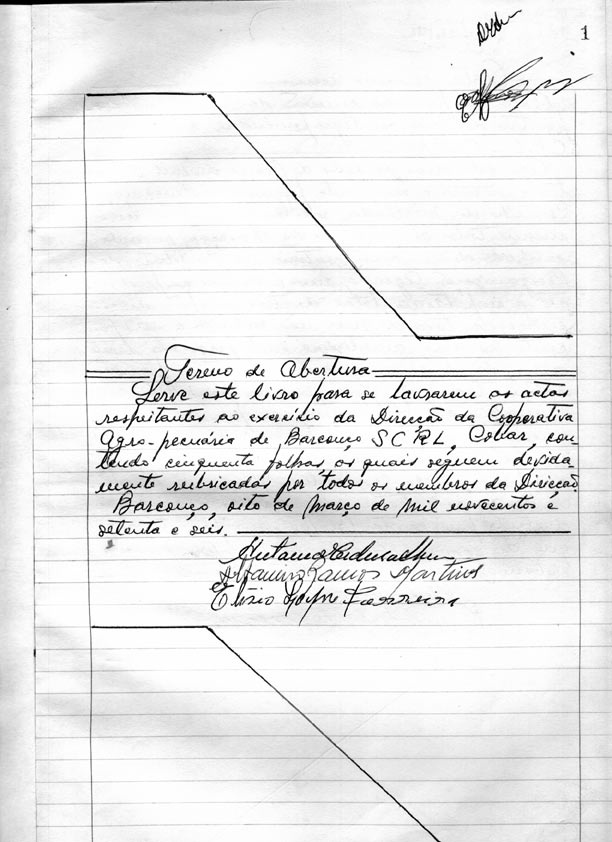 1
Termo de Abertura
Serve este livro para se lavrarem as actas
respeitantes ao exercício da Direcção da Cooperativa
Agro-pecuária de Barcouço SCRL, Cobar, con-
tendo cinquenta folhas, os quais seguem devida-
mente rubricadas por todos os membros da Direcção
Barcouço, oito de Março de mil novecentos e
setenta e seis.
Ramos Martins
Elísio Lopes Ferreira